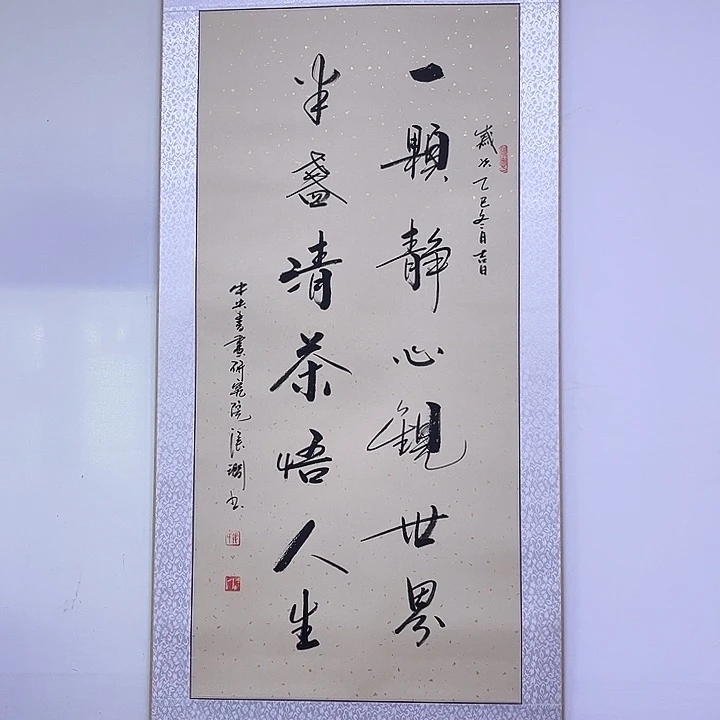 歲次乙巳冬月吉日
一顆靜心觀世界
半盞清茶悟人生
中央書畫研究院張淵書